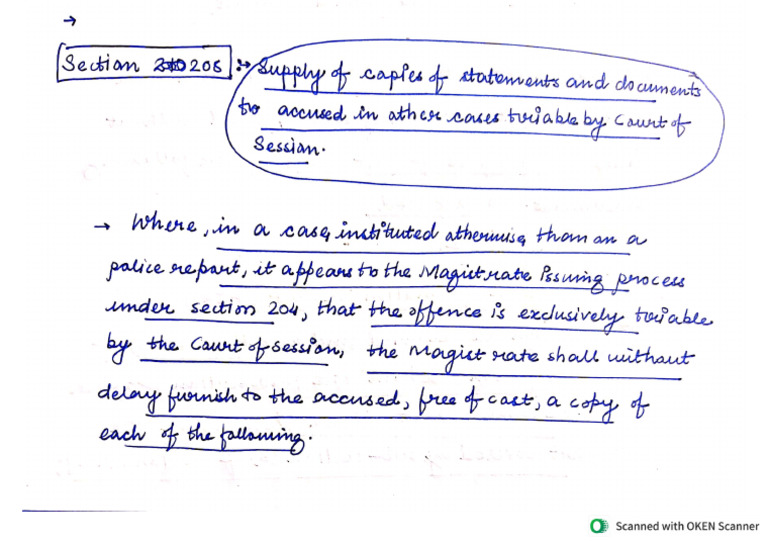 →
Section 208 :→ Supply of copies of statements and documents
to accused in other cases triable by Court of
Session.
→ Where, in a case, instituted otherwise than on a
police report, it appears to the Magistrate issuing process
under section 204, that the offence is exclusively triable
by the Court of session, the Magistrate shall without
delay furnish to the accused, free of cost, a copy of
each of the following:
Scanned with OKEN Scanner